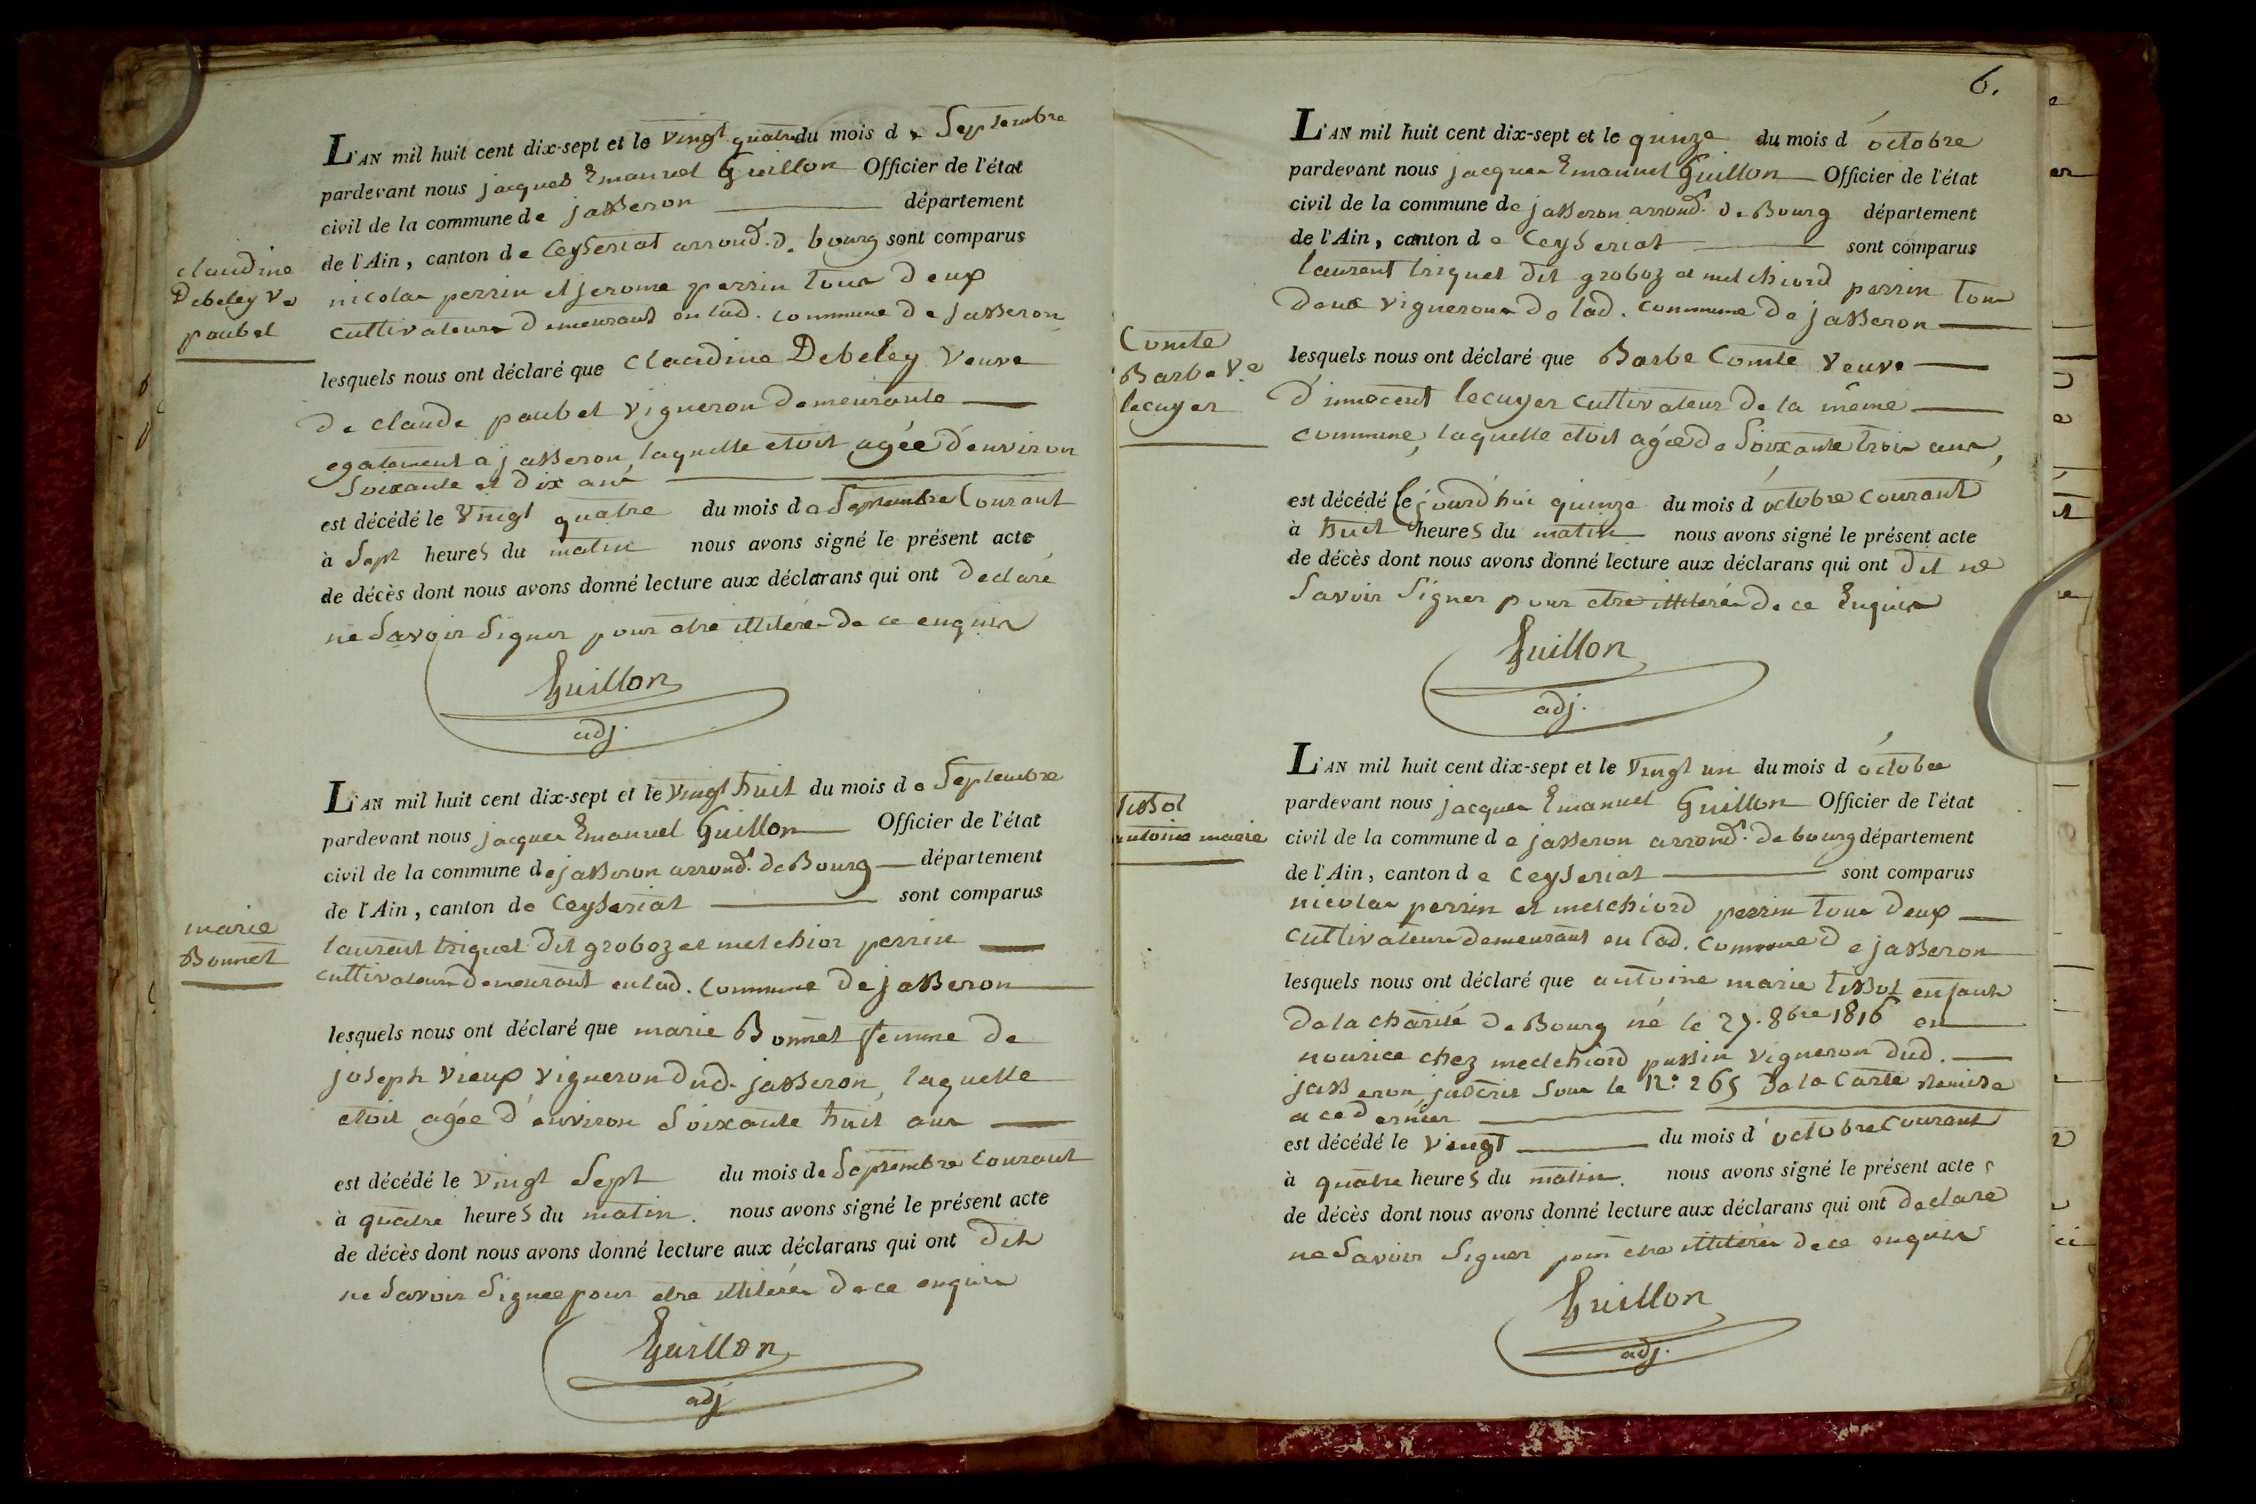 claudine
Debeley Ve
paubel
L'AN mil huit cent dix-sept et le vingt quatre du mois de Septembre
pardevant nous jacques Emanuel Guillon Officier de l'état
civil de la commune de jasseron département
de l'Ain, canton de Ceyseriat arrond.t de bourg sont comparus
nicolas perrin et jerome perrin tous deux
cultivateurs demeurant en lad. commune de jasseron
lesquels nous ont déclaré que claudine Debeley veuve
de claude paubel vigneron demeurante
egalement a jasseron, laquelle etoit agée d'environ
soixante et dix ans
est décédé le vingt quatre du mois de Septembre Courant
à sept heures du matin nous avons signé le présent acte
de décès dont nous avons donné lecture aux déclarans qui ont declaré
ne savoir signer pour etre illiterés de ce enquis
Guillon
adj.
marie
Bonnet
L'AN mil huit cent dix-sept et le vingt huit du mois de Septembre
pardevant nous jacques Emanuel Guillon Officier de l'état
civil de la commune de jasseron arrond.t de Bourg département
de l'Ain, canton de Ceyseriat sont comparus
laurent triquet dit groboz et melchior perrin
cultivateurs demeurant en lad. commune de jasseron
lesquels nous ont déclaré que marie Bonnet femme de
joseph vieux vigneron dud. jasseron, laquelle
etoit agée d'environ soixante huit ans
est décédé le vingt sept du mois de Septembre Courant
à quatre heures du matin. nous avons signé le présent acte
de décès dont nous avons donné lecture aux déclarans qui ont dit
ne savoir signer pour etre illiterés de ce enquis
Guillon
adj
6.
Comte
Barbe Ve
lecuyer
L'AN mil huit cent dix-sept et le quinze du mois d'octobre
pardevant nous jacques Emanuel Guillon Officier de l'état
civil de la commune de jasseron arrond.t de Bourg département
de l'Ain, canton de Ceyseriat sont comparus
laurent triquet dit groboz et melchiord perrin tous
deux vignerons de lad. commune de jasseron
lesquels nous ont déclaré que Barbe Comte veuve
d'innocent lecuyer cultivateur de la même
commune, laquelle etoit agée de soixante trois ans,
est décédé cejourd'hui quinze du mois d'octobre courant
à huit heures du matin nous avons signé le présent acte
de décès dont nous avons donné lecture aux déclarans qui ont dit ne
savoir signer pour etre illiterés de ce Enquis
Guillon
adj.
tissot
antoine marie
L'AN mil huit cent dix-sept et le vingt un du mois d'octobre
pardevant nous jacques Emanuel Guillon Officier de l'état
civil de la commune de jasseron arrond.t de bourg département
de l'Ain, canton de Ceyseriat sont comparus
nicolas perrin et melchiord perrin tous deux
cultivateurs demeurant en lad. commune de jasseron
lesquels nous ont déclaré que antoine marie tissot enfant
de la charité de Bourg né le 27. 8bre 1816 en
nourice chez melchiord vigneron dud.
jasseron, inscrit sous le N.o 265 de la Carte remise
a ce dernier
est décédé le vingt du mois d'octobre Courant
à quatre heures du matin. nous avons signé le présent acte
de décès dont nous avons donné lecture aux déclarans qui ont declaré
ne savoir signer pour etre illiterés de ce enquis
Guillon
adj.